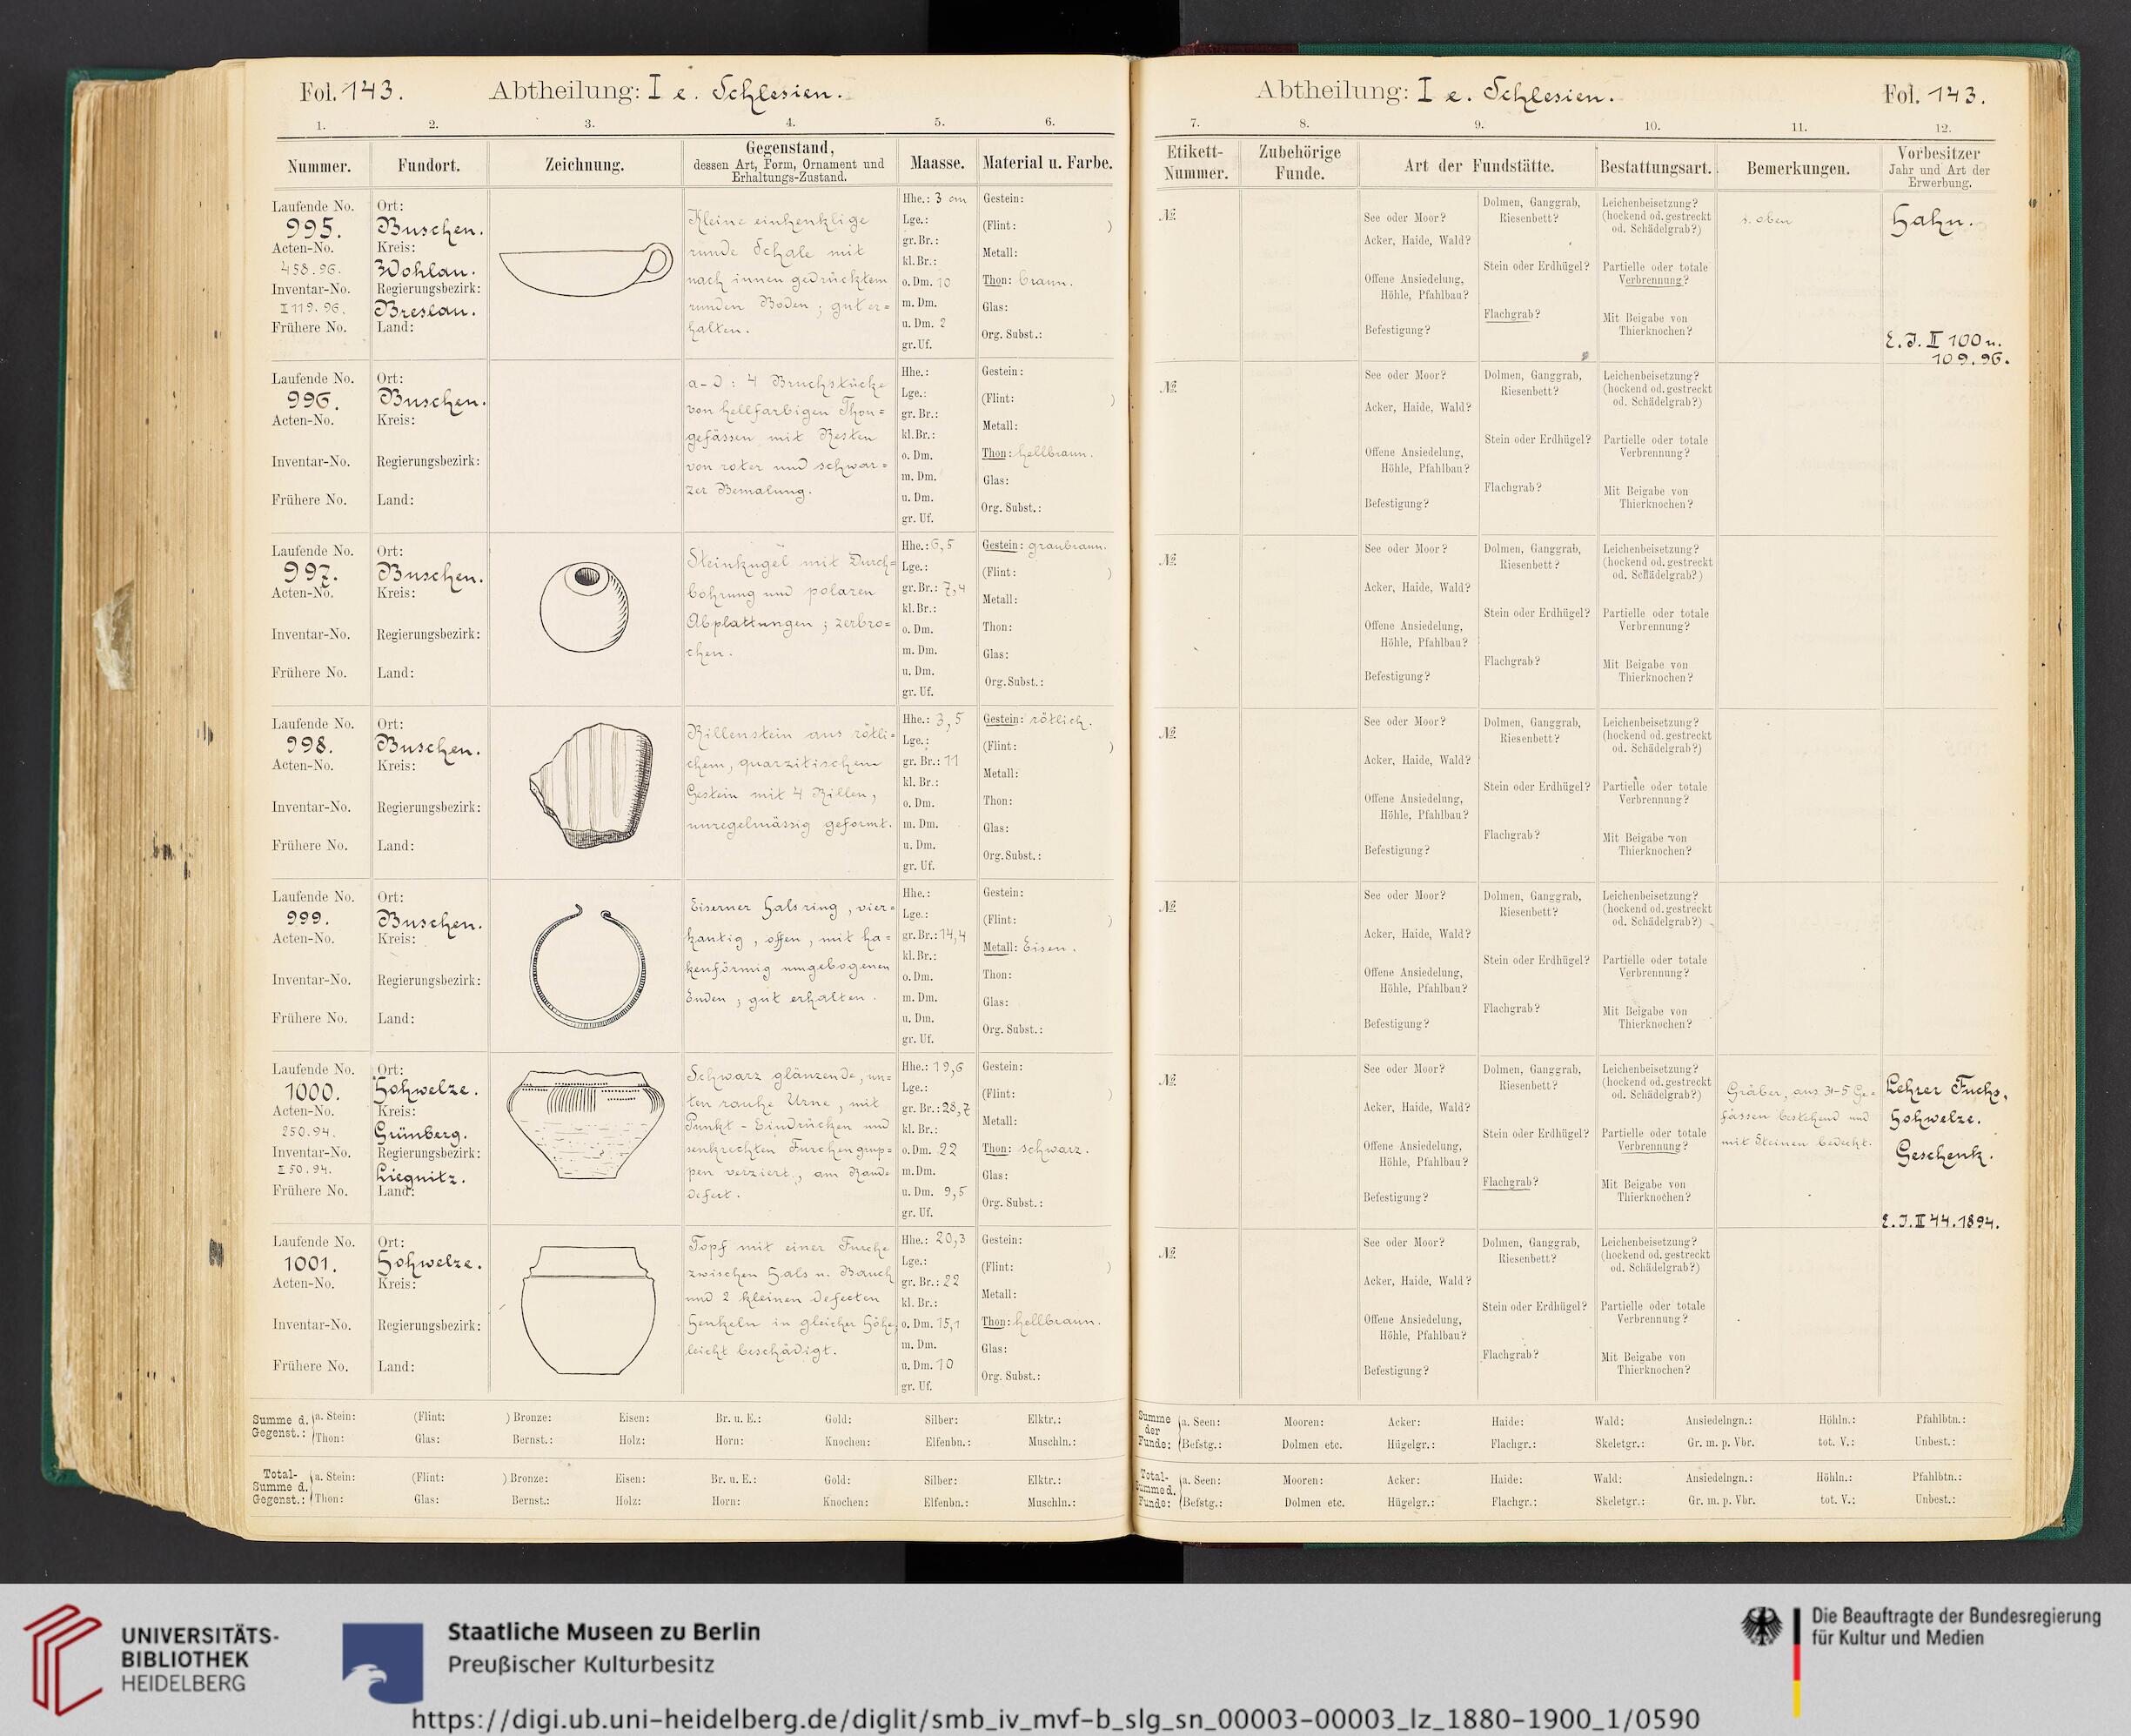 Fol. 143. Abtheilung: I e. Schlesien.
1. 2. 3. 4. 5. 6.
Nummer. Fundort. Zeichnung. Gegenstand, dessen Art, Form, Ornament und Erhaltungs-Zustand. Maasse. Material u. Farbe.
Laufende No. 995.
Acten-No. 458.96.
Inventar-No. II 119.96.
Frühere No.
Ort: Buschen.
Kreis: Wohlau.
Regierungsbezirk: Breslau.
Land:
Kleine einhenklige
runde Schale mit
nach innen gedrücktem
runden Boden; gut er=
halten.
Hhe.: 3 cm
Lge.:
gr. Br.:
kl. Br.:
o. Dm. 10
m. Dm.
u. Dm. 2
gr. Uf.
Gestein:
(Flint: )
Metall:
Thon: braun.
Glas:
Org. Subst.:
Laufende No. 996.
Acten-No.
Inventar-No.
Frühere No.
Ort: Buschen.
Kreis:
Regierungsbezirk:
Land:
a-d: 4 Bruchstücke
von hellfarbigen Thon=
gefässen mit Resten
von roter und schwar=
zer Bemalung.
Hhe.:
Lge.:
gr. Br.:
kl. Br.:
o. Dm.
m. Dm.
u. Dm.
gr. Uf.
Gestein:
(Flint: )
Metall:
Thon: hellbraun.
Glas:
Org. Subst.:
Laufende No. 997.
Acten-No.
Inventar-No.
Frühere No.
Ort: Buschen.
Kreis:
Regierungsbezirk:
Land:
Steinkugel mit Durch=
bohrung und polaren
Abplattungen; zerbro=
chen.
Hhe.: 6,5
Lge.:
gr. Br.: 7,4
kl. Br.:
o. Dm.
m. Dm.
u. Dm.
gr. Uf.
Gestein: graubraun.
(Flint: )
Metall:
Thon:
Glas:
Org. Subst.:
Laufende No. 998.
Acten-No.
Inventar-No.
Frühere No.
Ort: Buschen.
Kreis:
Regierungsbezirk:
Land:
Rillenstein aus rötli=
chem, quarzitischem
Gestein mit 4 Rillen,
unregelmässig geformt.
Hhe.: 3,5
Lge.:
gr. Br.: 11
kl. Br.:
o. Dm.
m. Dm.
u. Dm.
gr. Uf.
Gestein: rötlich.
(Flint: )
Metall:
Thon:
Glas:
Org. Subst.:
Laufende No. 999.
Acten-No.
Inventar-No.
Frühere No.
Ort: Buschen.
Kreis:
Regierungsbezirk:
Land:
Eiserner Halsring, vier=
kantig, offen, mit ha=
kenförmig umgebogenen
Enden; gut erhalten.
Hhe.:
Lge.:
gr. Br.: 14,4
kl. Br.:
o. Dm.
m. Dm.
u. Dm.
gr. Uf.
Gestein:
(Flint: )
Metall: Eisen.
Thon:
Glas:
Org. Subst.:
Laufende No. 1000.
Acten-No. 250.94.
Inventar-No. I 50.94.
Frühere No.
Ort: Hohwelze.
Kreis: Grünberg.
Regierungsbezirk: Liegnitz.
Land:
Schwarz glänzende, un=
ten rauhe Urne, mit
Punkt-Eindrücken und
senkrechten Furchengrup=
pen verziert, am Rande
defect.
Hhe.: 19,6
Lge.:
gr. Br.: 28,7
kl. Br.:
o. Dm. 22
m. Dm.
u. Dm. 9,5
gr. Uf.
Gestein:
(Flint: )
Metall:
Thon: schwarz.
Glas:
Org. Subst.:
Laufende No. 1001.
Acten-No.
Inventar-No.
Frühere No.
Ort: Hohwelze.
Kreis:
Regierungsbezirk:
Land:
Topf mit einer Furche
zwischen Hals u. Bauch
und 2 kleinen defecten
Henkeln in gleicher Höhe,
leicht beschädigt.
Hhe.: 20,3
Lge.:
gr. Br.: 22
kl. Br.:
o. Dm. 15,1
m. Dm.
u. Dm. 10
gr. Uf.
Gestein:
(Flint: )
Metall:
Thon: hellbraun.
Glas:
Org. Subst.:
Summe d. Gegenst.: a. Stein: (Flint: ) Bronze: Eisen: Br. u. E.: Gold: Silber: Elktr.:
Thon: Glas: Bernst.: Holz: Horn: Knochen: Elfenbn.: Muschln.:
Total-Summe d. Gegenst.: a. Stein: (Flint: ) Bronze: Eisen: Br. u. E.: Gold: Silber: Elktr.:
Thon: Glas: Bernst.: Holz: Horn: Knochen: Elfenbn.: Muschln.:
Abtheilung: I e. Schlesien. Fol. 143.
7. 8. 9. 10. 11. 12.
Etikett-Nummer. Zubehörige Funde. Art der Fundstätte. Bestattungsart. Bemerkungen. Vorbesitzer Jahr und Art der Erwerbung.
№
See oder Moor?
Acker, Haide, Wald?
Offene Ansiedelung,
Höhle, Pfahlbau?
Befestigung?
Dolmen, Ganggrab,
Riesenbett?
Stein oder Erdhügel?
Flachgrab?
Leichenbeisetzung?
(hockend od. gestreckt
od. Schädelgrab?)
Partielle oder totale
Verbrennung?
Mit Beigabe von
Thierknochen?
s. oben
Hahn.
E.J. II 100 u.
109.96.
№
See oder Moor?
Acker, Haide, Wald?
Offene Ansiedelung,
Höhle, Pfahlbau?
Befestigung?
Dolmen, Ganggrab,
Riesenbett?
Stein oder Erdhügel?
Flachgrab?
Leichenbeisetzung?
(hockend od. gestreckt
od. Schädelgrab?)
Partielle oder totale
Verbrennung?
Mit Beigabe von
Thierknochen?
№
See oder Moor?
Acker, Haide, Wald?
Offene Ansiedelung,
Höhle, Pfahlbau?
Befestigung?
Dolmen, Ganggrab,
Riesenbett?
Stein oder Erdhügel?
Flachgrab?
Leichenbeisetzung?
(hockend od. gestreckt
od. Schädelgrab?)
Partielle oder totale
Verbrennung?
Mit Beigabe von
Thierknochen?
№
See oder Moor?
Acker, Haide, Wald?
Offene Ansiedelung,
Höhle, Pfahlbau?
Befestigung?
Dolmen, Ganggrab,
Riesenbett?
Stein oder Erdhügel?
Flachgrab?
Leichenbeisetzung?
(hockend od. gestreckt
od. Schädelgrab?)
Partielle oder totale
Verbrennung?
Mit Beigabe von
Thierknochen?
№
See oder Moor?
Acker, Haide, Wald?
Offene Ansiedelung,
Höhle, Pfahlbau?
Befestigung?
Dolmen, Ganggrab,
Riesenbett?
Stein oder Erdhügel?
Flachgrab?
Leichenbeisetzung?
(hockend od. gestreckt
od. Schädelgrab?)
Partielle oder totale
Verbrennung?
Mit Beigabe von
Thierknochen?
№
See oder Moor?
Acker, Haide, Wald?
Offene Ansiedelung,
Höhle, Pfahlbau?
Befestigung?
Dolmen, Ganggrab,
Riesenbett?
Stein oder Erdhügel?
Flachgrab?
Leichenbeisetzung?
(hockend od. gestreckt
od. Schädelgrab?)
Partielle oder totale
Verbrennung?
Mit Beigabe von
Thierknochen?
Gräber, aus 3-5 Ge=
fässen bestehend und
mit Steinen bedeckt.
Lehrer Fuchs,
Hohwelze.
Geschenk.
E.J. II 44.1894.
№
See oder Moor?
Acker, Haide, Wald?
Offene Ansiedelung,
Höhle, Pfahlbau?
Befestigung?
Dolmen, Ganggrab,
Riesenbett?
Stein oder Erdhügel?
Flachgrab?
Leichenbeisetzung?
(hockend od. gestreckt
od. Schädelgrab?)
Partielle oder totale
Verbrennung?
Mit Beigabe von
Thierknochen?
Summe der Funde: a. Seen: Mooren: Acker: Haide: Wald: Ansiedelngn.: Höhln.: Pfahlbtn.:
Befstg.: Dolmen etc. Hügelgr.: Flachgr.: Skeletgr.: Gr. m. p. Vbr. tot. V.: Unbest.:
Total-Summe d. Funde: a. Seen: Mooren: Acker: Haide: Wald: Ansiedelngn.: Höhln.: Pfahlbtn.:
Befstg.: Dolmen etc. Hügelgr.: Flachgr.: Skeletgr.: Gr. m. p. Vbr. tot. V.: Unbest.:
UNIVERSITÄTS-
BIBLIOTHEK
HEIDELBERG
Staatliche Museen zu Berlin
Preußischer Kulturbesitz
Die Beauftragte der Bundesregierung
für Kultur und Medien
https://digi.ub.uni-heidelberg.de/diglit/smb_iv_mvf-b_slg_sn_00003-00003_lz_1880-1900_1/0590